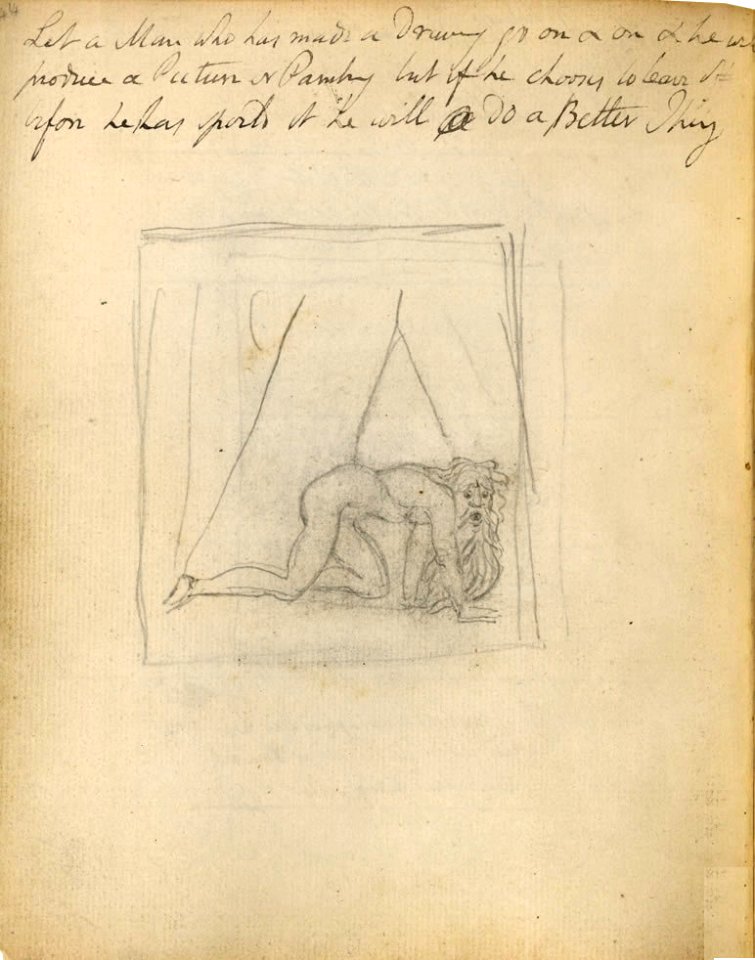 44
Let a Man who has made a Drawing go on & on & he wi
produce a Picture or Painting but if he chooses to leave it
before he has spoild it he will Do a Better Thing